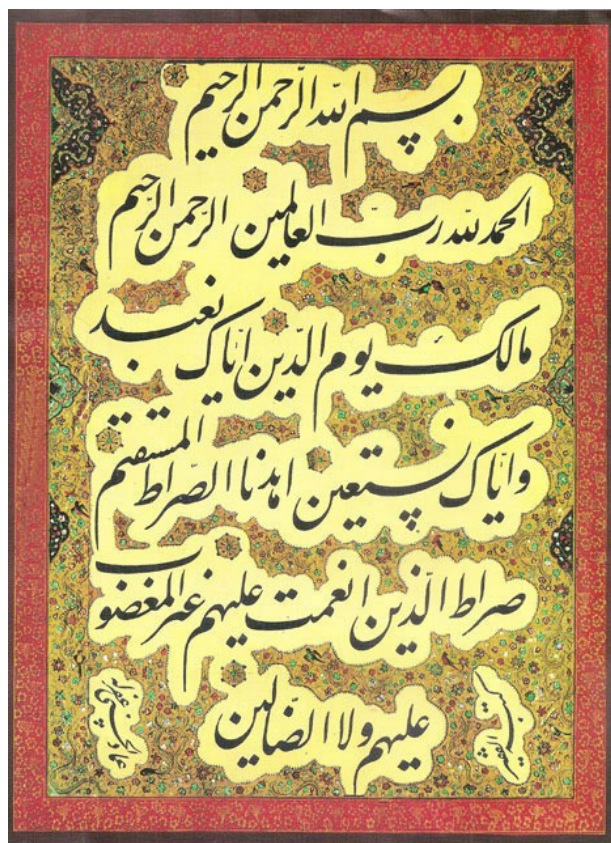 بسم الله الرحمن الرحیم
الحمد لله ربّ العالمین الرحمن الرحیم
مالک یوم الدّین ایّاک نعبد
و ایّاک نستعین اهدنا الصّراط المستقیم
صراط الّذین انعمت علیهم غیر المغضوب
علیهم ولا الضالین